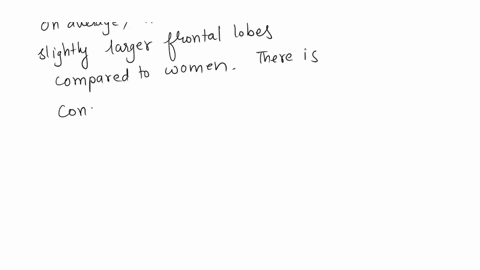 on average,
slightly larger frontal lobes
compared to women. There is
con